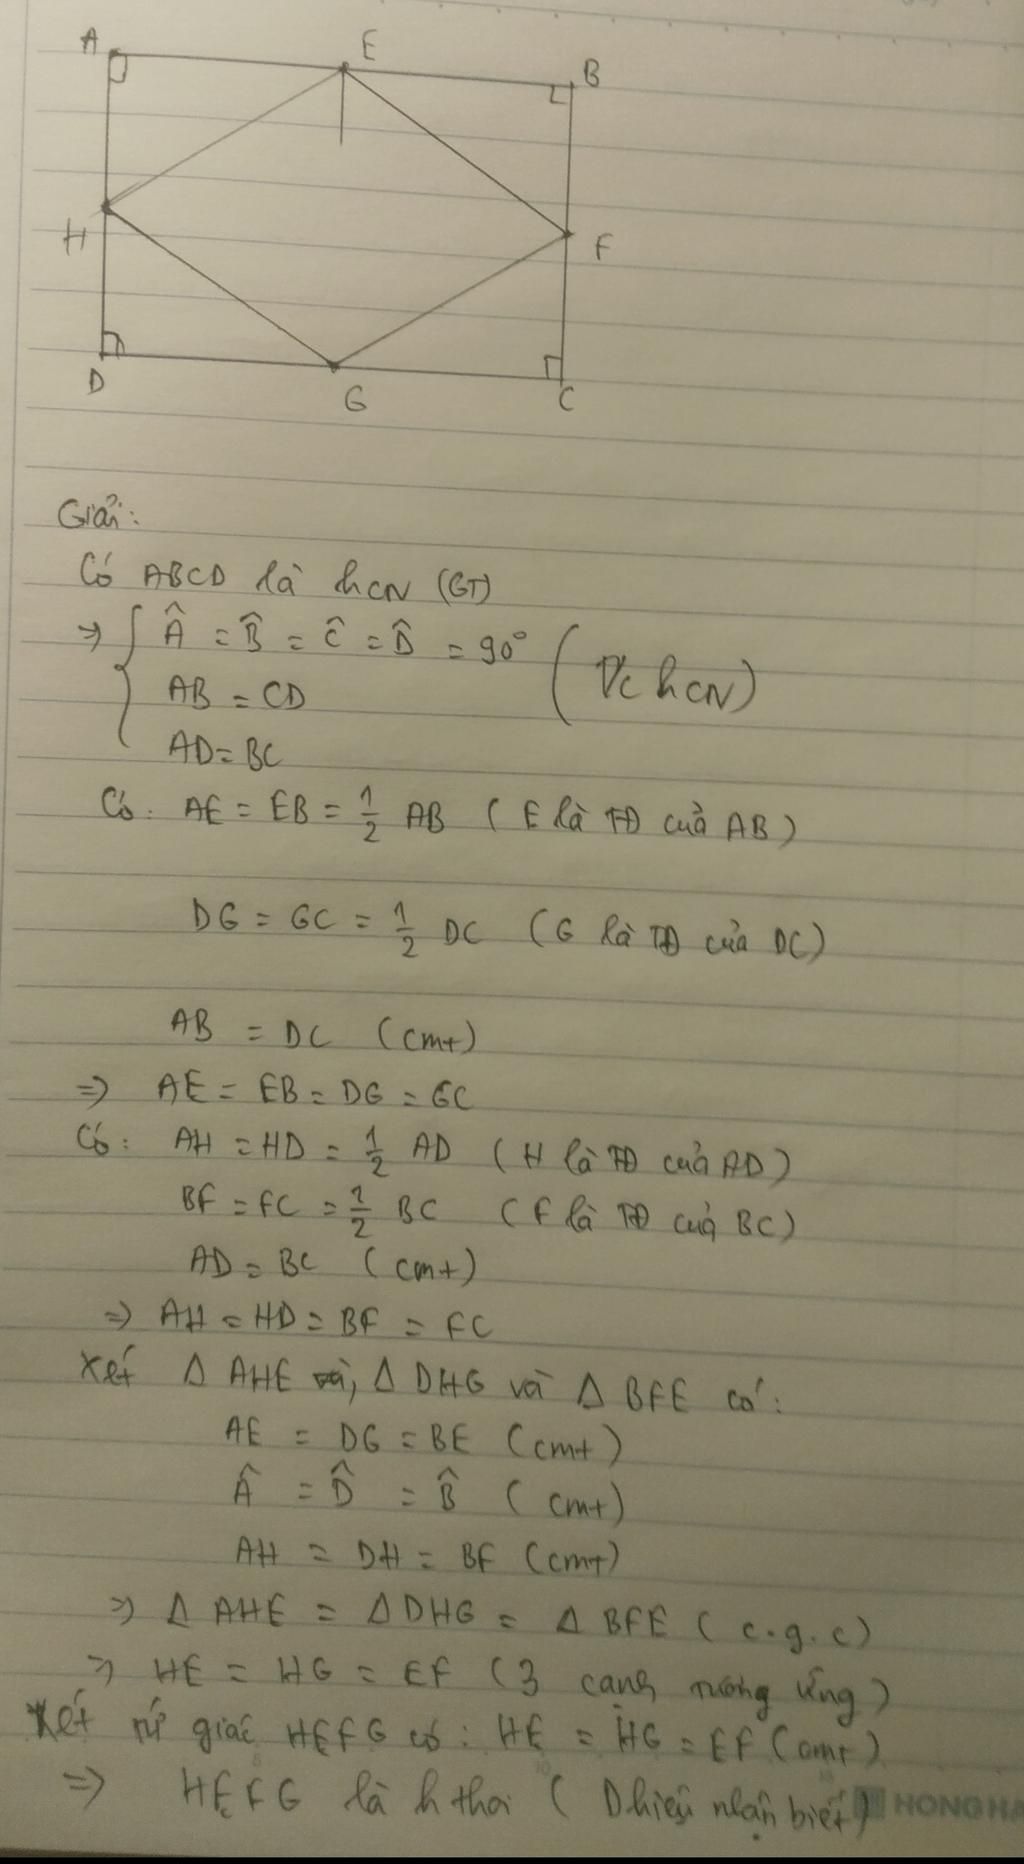 A E B
H F
D G C
Giải:
Có ABCD là hCN (GT)
=> { Â = B̂ = Ĉ = D̂ = 90° (T/c hCN)
AB = CD
AD = BC
Có: AE = EB = 1/2 AB (E là TĐ của AB)
DG = GC = 1/2 DC (G là TĐ của DC)
AB = DC (cmt)
=> AE = EB = DG = GC
Có: AH = HD = 1/2 AD (H là TĐ của AD)
BF = FC = 1/2 BC (F là TĐ của BC)
AD = BC (cmt)
=> AH = HD = BF = FC
Xét Δ AHE, Δ DHG và Δ BFE có:
AE = DG = BE (cmt)
Â = D̂ = B̂ (cmt)
AH = DH = BF (cmt)
=> Δ AHE = Δ DHG = Δ BFE (c.g.c)
=> HE = HG = EF (3 cạnh tương ứng)
Xét tứ giác HEFG có: HE = HG = EF (cmt)
=> HEFG là h thoi (Dhiệu nhận biết)
HONG HA